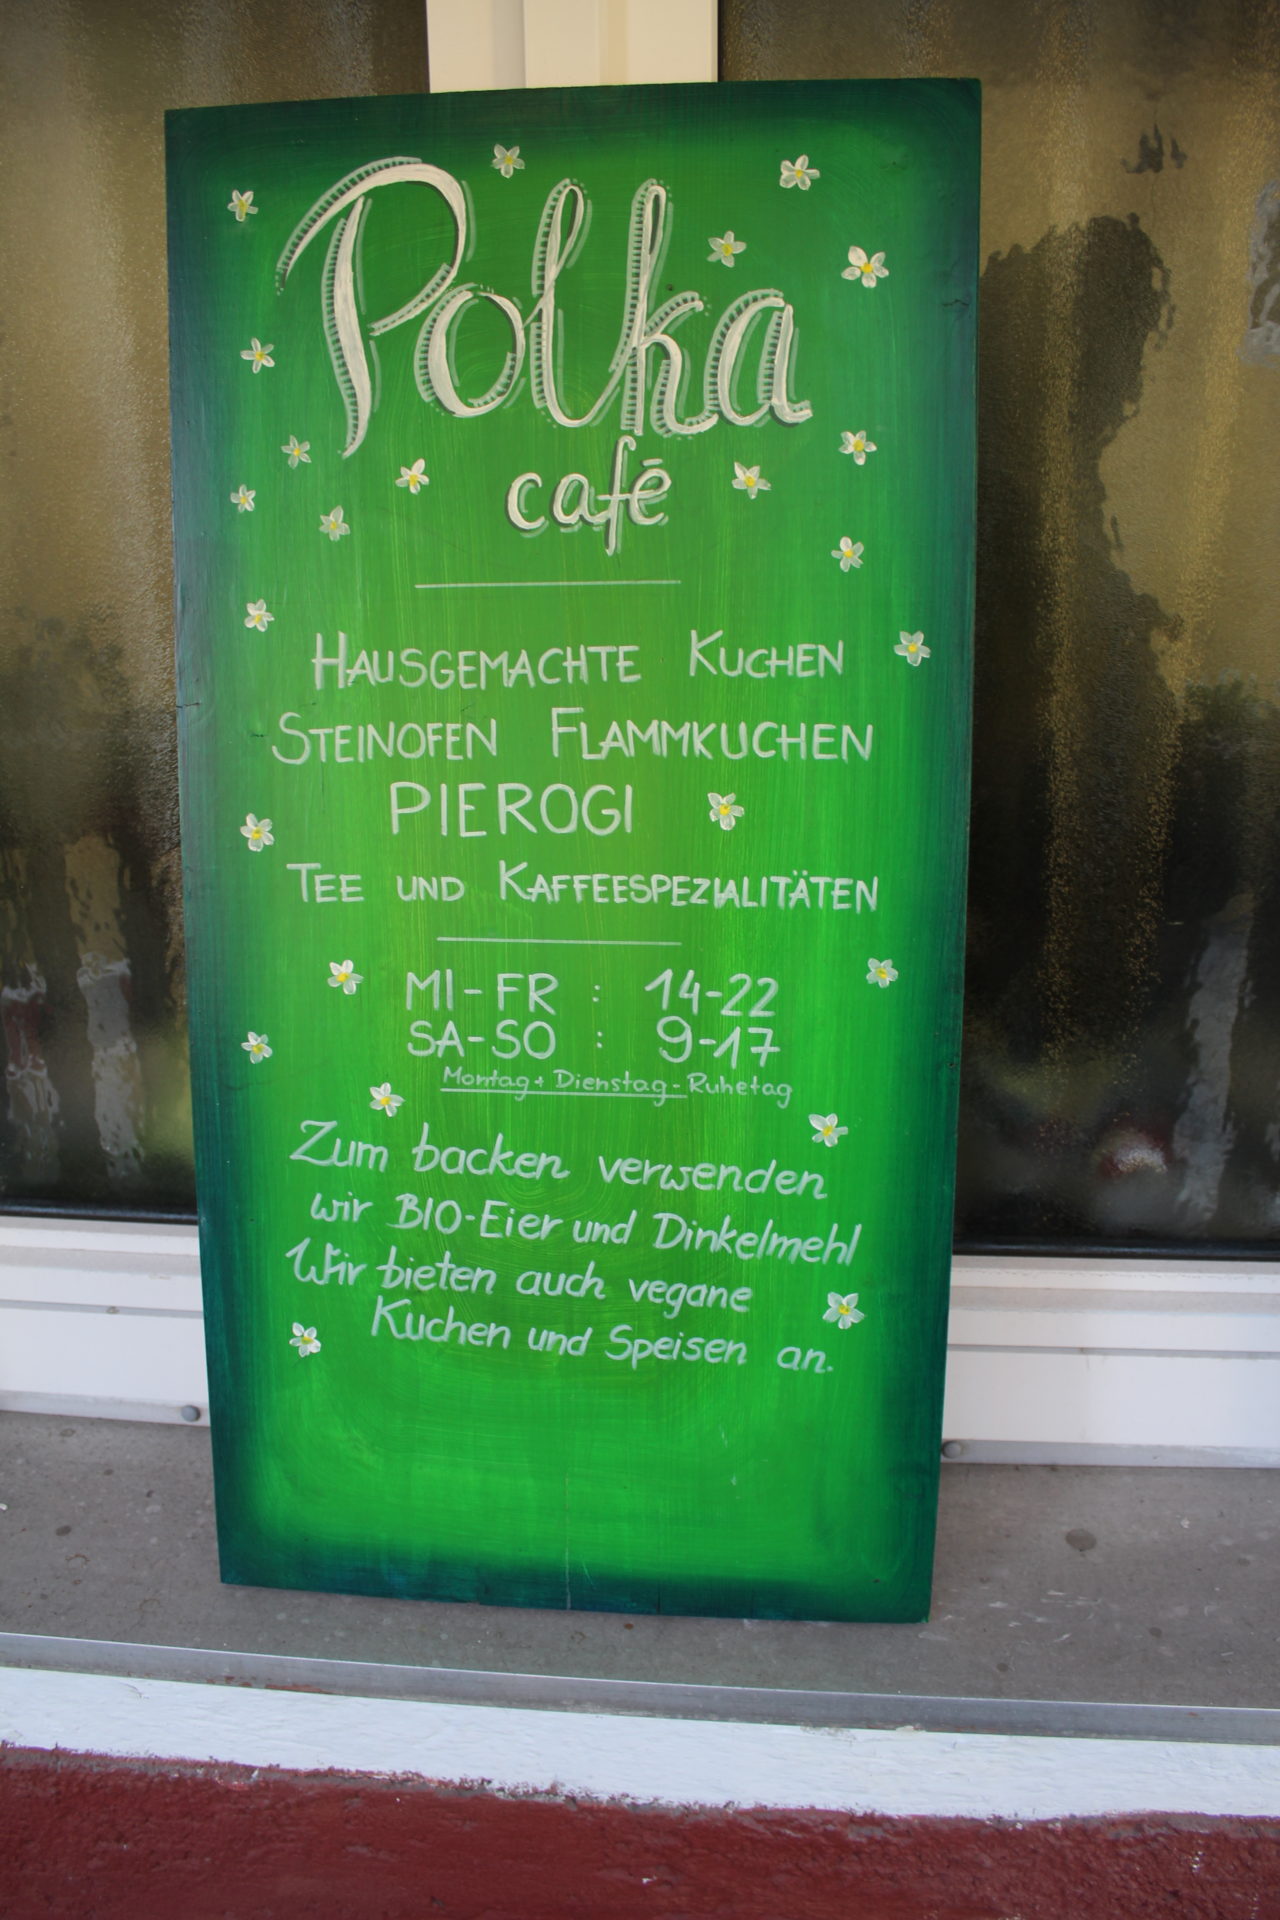 Polka
café
HAUSGEMACHTE KUCHEN
STEINOFEN FLAMMKUCHEN
PIEROGI
TEE UND KAFFEESPEZIALITÄTEN
MI-FR : 14-22
SA-SO : 9-17
Montag + Dienstag - Ruhetag
Zum backen verwenden
wir BIO-Eier und Dinkelmehl
Wir bieten auch vegane
Kuchen und Speisen an.